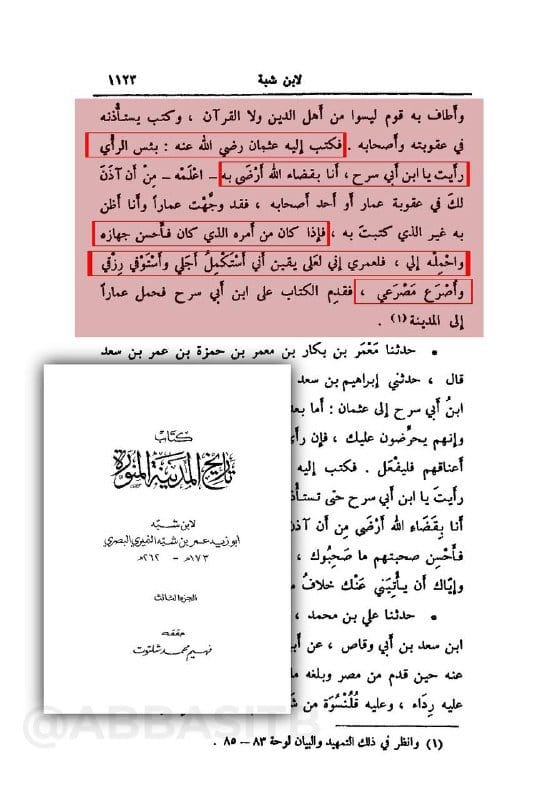 لابن شبة
١١٢٣
وأطاف به قوم ليسوا من أهل الدين ولا القرآن ، وكتب يستأذنه
في عقوبته وأصحابه . فكتب إليه عثمان رضي الله عنه : بئس الرأي
رأيت يا ابن أبي سرح ، أنا بقضاء الله أَرْضَى به – اعْلَمْه – مِنْ أن آذَنَ
لكَ في عقوبة عمار أو أحد أصحابه ، فقد وجَّهت عماراً وأنا أظن
به غير الذي كتبتَ به ، فإذا كان من أمره الذي كان فأَحسن جهازه
واحْمِلْه إلي ، فلعمري إني لعَلى يقين أني أَستكْمِلُ أَجلي وأَسْتَوْفي رِزْقي
وأَصْرَع مَصْرَعي ، فقدِم الكتاب على ابن أبي سرح فحمل عماراً
إلى المدينة (١) .
• حدثنا مَعْمَر بن بكار بن معمر بن حمزة بن عمر بن سعد
قال ، حدثني إبراهيم بن سعد
ابنُ أبي سرح إلى عثمان : أما بعد
وإنهم يحرِّضون عليك ، فإن رأ
أعناقهم فليفْعَل . فكتب إليه
رأيتَ يا ابن أبي سرح حتى تستأذ
أنا بِقَضَاء الله أَرْضَى مِن أن آذن
فأَحْسِن صحبتهم ما صَحِبُوك ،
وإيَّاك أن يأْتِيَني عَنْك خلافُ
• حدثنا علي بن محمد ،
ابن سعد بن أبي وقاص ، عن أب
عنه حين قدم من مصر وبلغه ما
عليه رِدَاء ، وعليه قُلُنْسُوَة من
(١) وانظر في ذلك التمهيد والبيان لوحة ٨٣ – ٨٥ .
كتاب
تاريخ المدينة المنورة
لابن شبه
ابو زيد عمر بن شبه النميري البصري
١٧٣هـ - ٢٦٢هـ
الجزء الثالث
حققه
فهيم محمد شلتوت
@ABBASITB